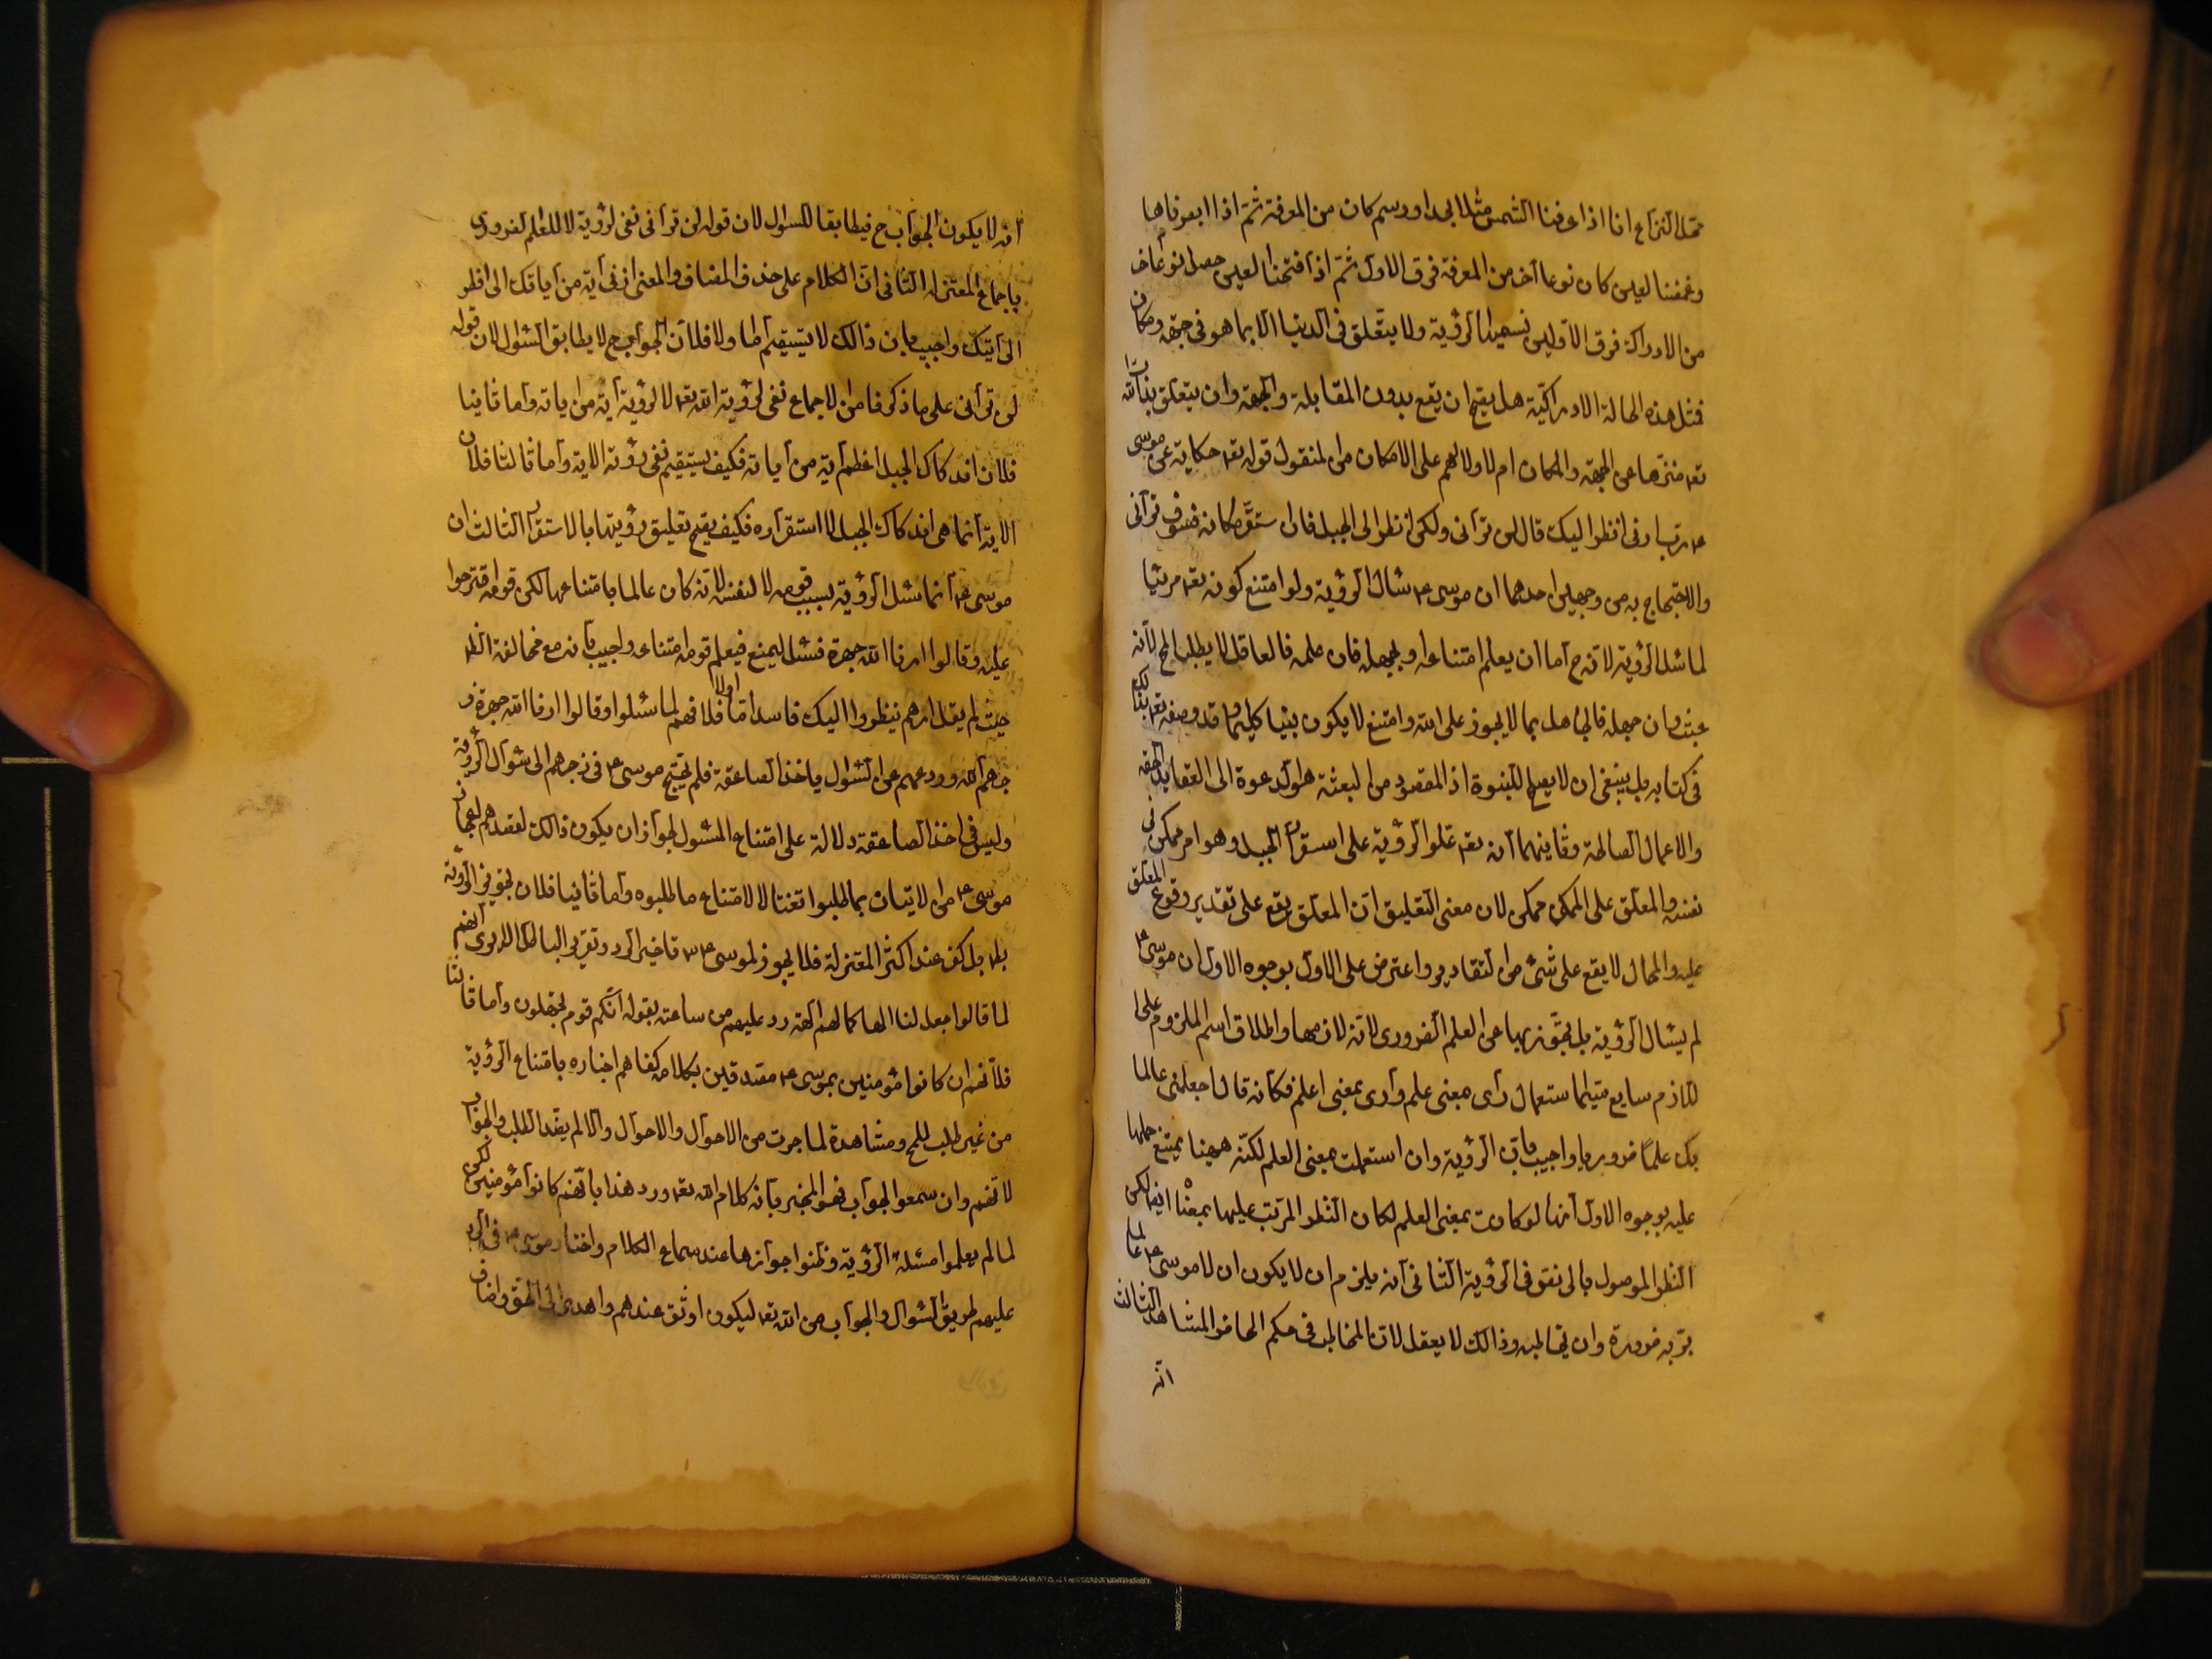 محل النزاع انا اذا عرفنا الشمس مثلا بحد او رسم كان من المعرفة ثم اذا ابصرناها
وغمضنا لعين كان نوعا آخر من المعرفة فوق الاول ثم اذا فتحنا العين حصل نوع آخر
من الادراك فوق الاولين نسميها الرؤية ولا يتعلق فى الدنيا الا بما هو فى جهة ومكان
فمثل هذه الحالة الادراكية هل يصح ان يقع بدون المقابلة والجهة وان يتعلق بذات الله
تعه منزها عن الجهة والمكان ام لا ولا لهم على الامكان من لمنقول قوله تعه حكاية عن موسى
عم رب ارنى انظر اليك قال لن ترآنى ولكن انظر الى الجبل فان استقر مكانه فسوف ترآنى
والاحتجاج به من وجهين احدهما ان موسى عم سال الرؤية ولو امتنع كونه تعه مرئيا
لما سئل الرؤية لانه ح اما ان يعلم امتناعه او يجهله فان علمه فالعاقل لا يطلب المح لانه
عبث وان جهله فالجاهل بما لا يجوز على الله وامتنع لا يكون نبيا كليما وقد وصفه تعه بذلك
فى كتابه بل ينبغى ان لا يصلح للنبوة اذ المقصود من البعثة هو الدعوة الى العقايد الحقه
والاعمال الصالحة وثانيهما انه تعه علق الرؤية على استقرار الجبل وهو امر ممكن فى
نفسه والمعلق على الممكن ممكن لان معنى التعليق ان المعلق يقع على تقدير وقوع المعلق
عليه والمحال لا يقع على شئ من التقادير واعترض على الاول بوجوه الاول ان موسى عم
لم يسال الرؤية بل تجوز بها عن العلم الضرورى لانه لازمها واطلاق اسم الملزوم على
اللازم سايع سيما استعمال رأى بمعنى علم وأرى بمعنى اعلم فكأنه قال اجعلنى عالما
بك علمًا ضروريا واجيب بان الرؤية وان استعملت بمعنى العلم لكنه ههنا يمتنع حملها
عليه بوجوه الاول انها لو كانت بمعنى العلم لكان النظر المرتب عليها بمعناه ايضا لكن
النظر الموصول بالى نص فى الرؤية الثانى انه يلزم ان لا يكون موسى عم عالما
بربه ضرورة وان يخاطبه وذالك لا يعقل لان المخاطب فى حكم الحاضر المشاهد الثالث
انه
انه لا يكون الجوآب ح مطابقا للسوال لان قوله لن ترآنى نفى لرؤية لا للعلم لضرورى
باجماع المعتزله الثانى ان الكلام على حذف المضاف والمعنى ارنى آية من آياتك الى انظر
الى آيتك واجيب بان ذالك لا يستقيم اما اولا فلان الجواب ح لا يطابق السئول لان قوله
لن ترآنى على ما ذكرنا من الاجماع نفى لرؤية الله تعه لا لرؤية آية من اياته واما ثانيا
فلان اندكاك الجبل اعظم آية من آياته فكيف يستقيم نفى رؤية الاية واما ثالثا فلان
الاية انما هى اندكاك الجبل لا استقراره فكيف يصح تعليق رؤيتها بالاستقرار الثالث ان
موسى عم انما سئل الرؤية بسبب قومه لا لنفسه لانه كان عالما بامتناعها لكن قومه اقترحوا
عليه وقالوا ارنا الله جهرة فسئل ليمنع فيعلم قومه امتناعه واجيب بانه مع مخالفة الظ
حيث لم يقل ارهم ينظروا اليك فاسد اما اولا فلانهم لما سئلوا وقالوا ارنا الله جهرة
زجرهم الله وردعهم عن السئول باخذ الصاعقة فلم يحتج موسى عم فى زجرهم الى سوال الرؤية
وليس فى اخذ الصاعقة دلالة على امتناع المسئول لجوآز ان يكون ذالك لقصدهم اعجاز
موسى عم من الاتيان بما طلبوا تعنتا لا لامتناع ما طلبوه واما ثانيا فلان تجويز الرؤية
بط بل كفر عند اكثر المعتزلة فلا يجوز لموسى عم تاخير الرد وتقرير الباطل الا يرى انهم
لما قالوا اجعل لنا الها كما لهم آلهة رد عليهم من ساعته بقوله انكم قوم تجهلون واما ثالثا
فلانهم ان كانوا مؤمنين بموسى عم مصدقين بكلامه كفاهم اخباره بامتناع الرؤية
من غير طلب للمح ومشاهدة لما جرت من الاحوآل والاحوال والا لم يفد الطلب والجواب
لانهم وان سمعوا الجوآب فهو المخبر بانه كلام الله تعه ورد هذا بانهم كانوا مؤمنين لكن
لما لم يعلموا مسئلة الرؤية وظنوا جوازها عند سماع الكلام واختار موسى عم فى الرد
عليهم طريق السوال والجوآب من الله تعه ليكون اوثق عندهم واهدى الى الحق واضاف